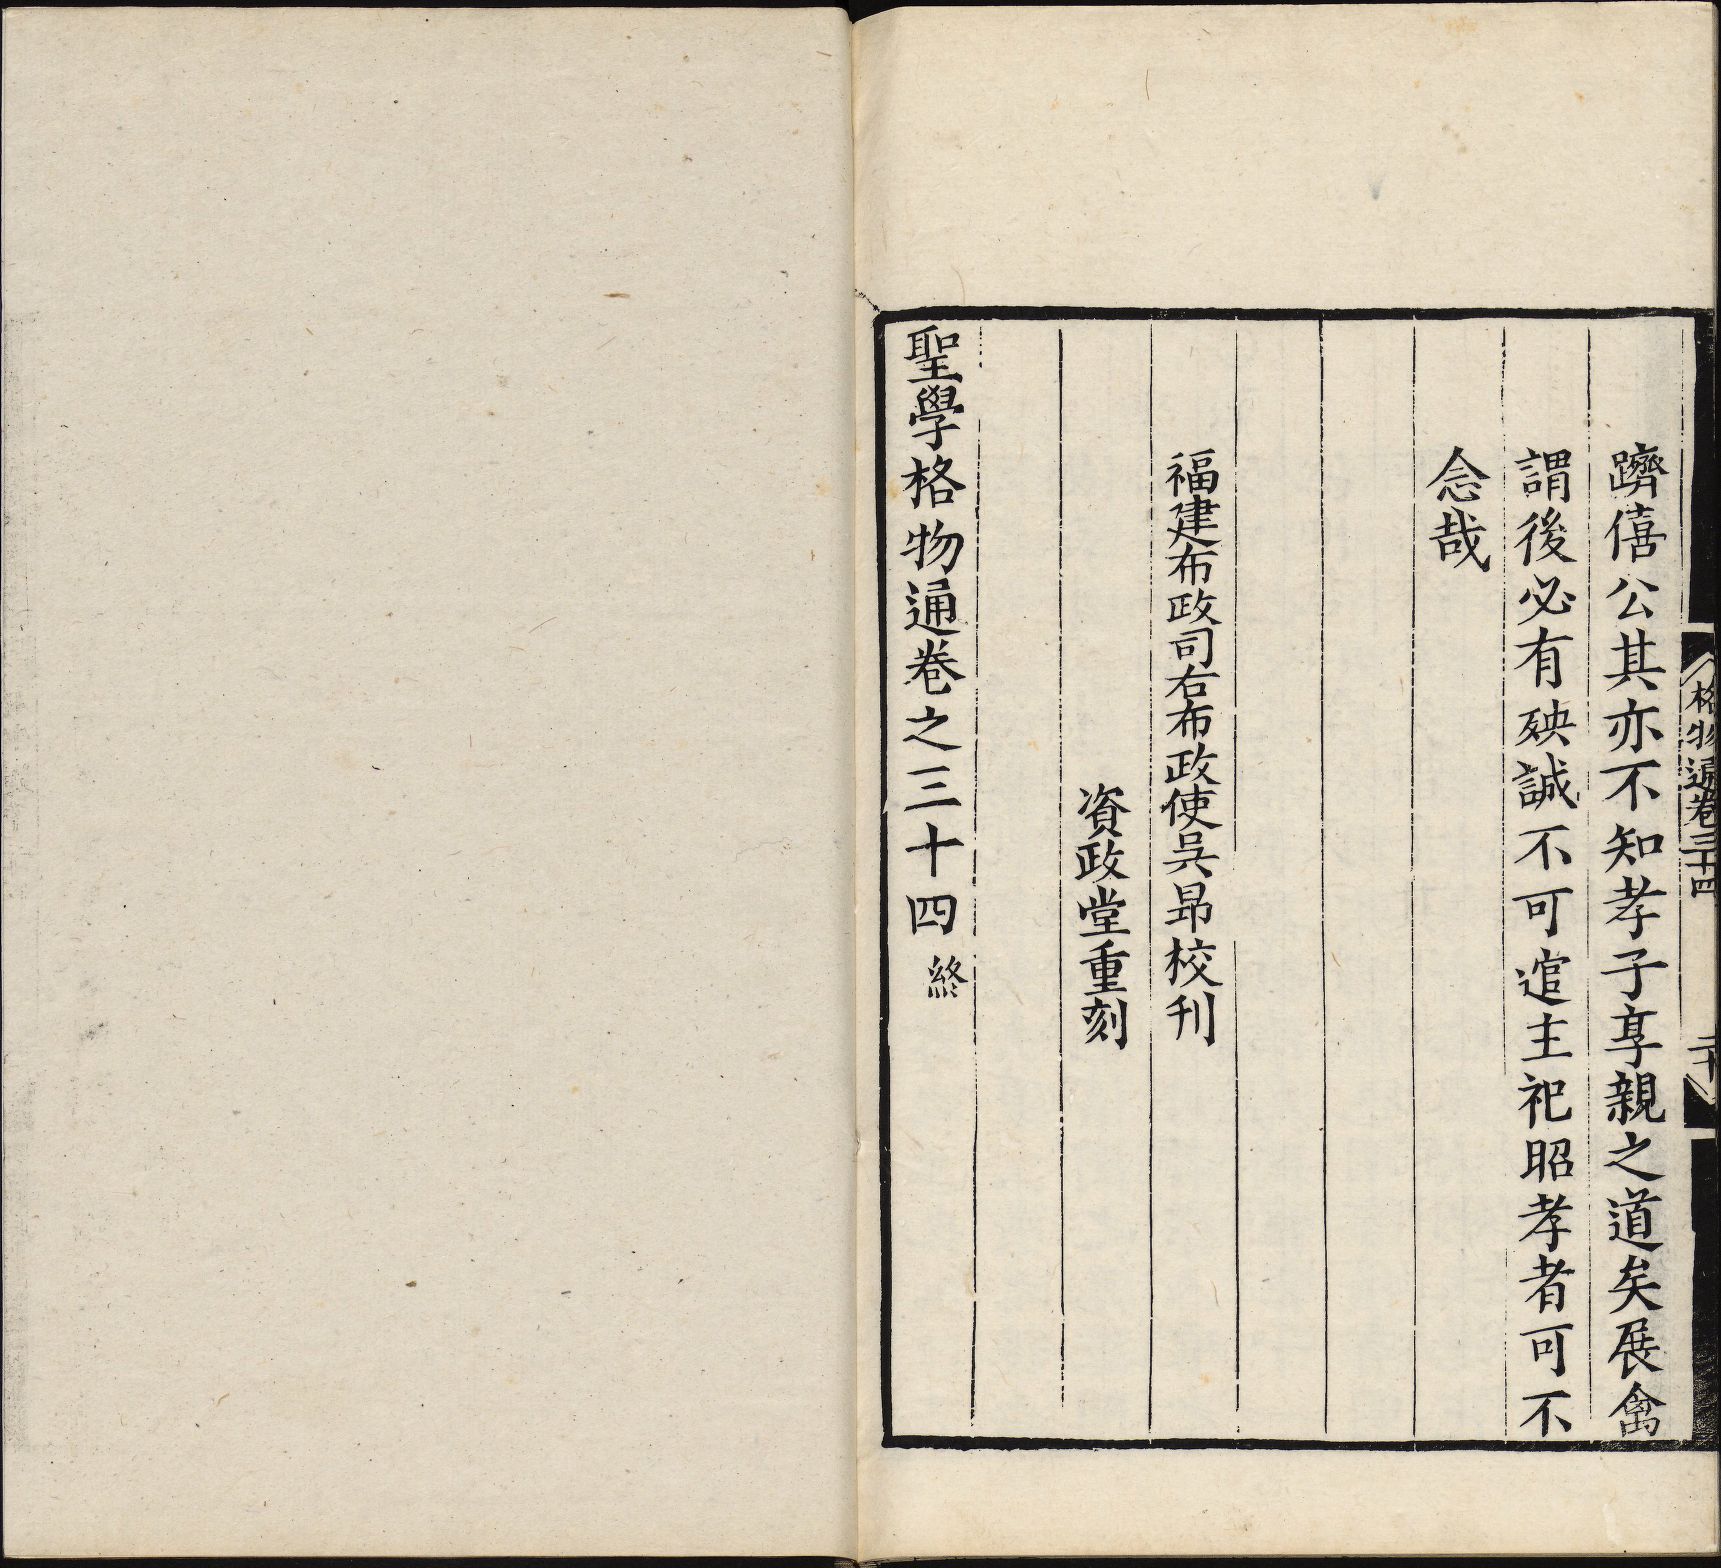 格物通卷三十四
二十
躋僖公其亦不知孝子享親之道矣展禽
謂後必有殃誠不可逭主祀昭孝者可不
念哉
福建布政司右布政使吳昂校刊
資政堂重刻
聖學格物通卷之三十四終